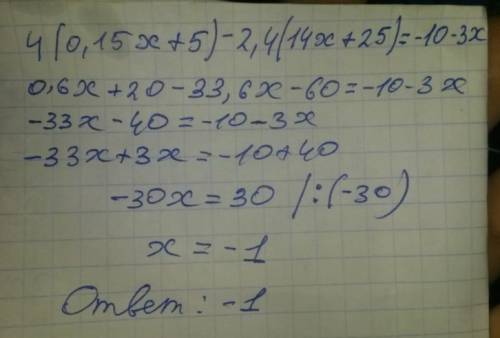 4(0,15x+5)-2,4(14x+25)=-10-3x
0,6x+20-33,6x-60=-10-3x
-33x-40=-10-3x
-33x+3x=-10+40
-30x=30 /:(-30)
x=-1
Ответ: -1